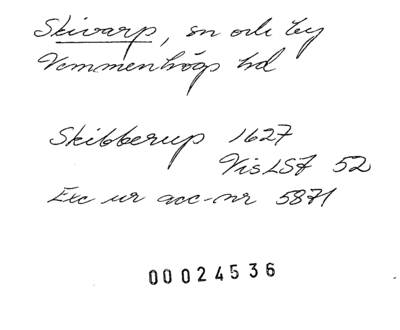 Skivarp, sn och by
Vemmenhögs hd
Skibberup 1627
VisLSt 52
Exc ur acc-nr 5871
00024536